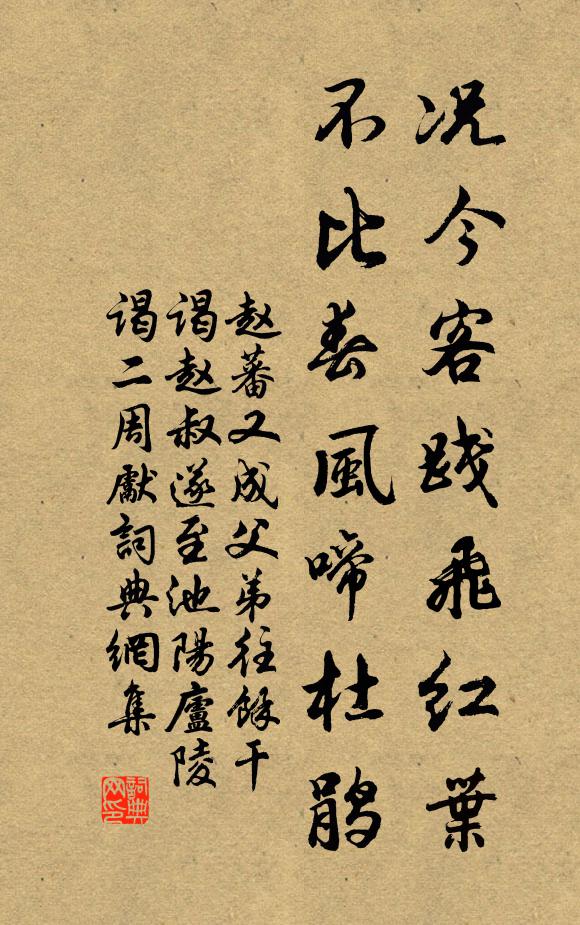 况今客践飛紅葉
不比春風啼杜鹃
赵蕃又成父弟往餘干
谒赵叔遂至池陽廬陵
谒二周獻詞典網集
詞典網印